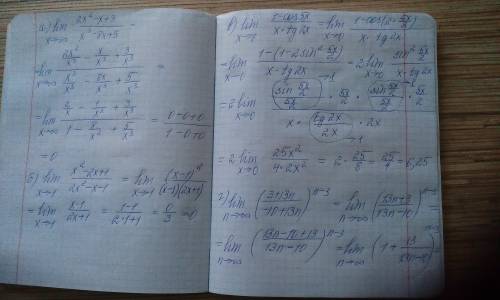 а) lim x→∞ (2x² - x + 3)/(x³ - 8x + 5) =
= lim x→∞ (2x²/x³ - x/x³ + 3/x³)/(x³/x³ - 8x/x³ + 5/x³) =
= lim x→∞ (2/x - 1/x² + 3/x³)/(1 - 8/x² + 5/x³) = (0-0+0)/(1-0+0)
= 0
б) lim x→1 (x²-2x+1)/(2x²-x-1) = lim x→1 (x-1)²/((x-1)(2x+1))
= lim x→1 (x-1)/(2x+1) = (1-1)/(2·1+1) = 0/3 = 0
в) lim x→0 (1-cos5x)/(x·tg2x) = lim x→0 (1-cos(2·5x/2))/(x·tg2x)
= lim x→0 (1-(1-2sin² 5x/2))/(x·tg2x) = 2 lim x→0 (sin² 5x/2)/(x·tg2x)
= 2 lim x→0 ((sin 5x/2)/(5x/2) · 5x/2 · (sin 5x/2)/(5x/2) · 5x/2)/(x · (tg2x)/(2x) · 2x)
= 2 lim x→0 25x²/(4·2x²) = 2·25/8 = 25/4 = 6,25
г) lim n→∞ ((3+13n)/(-10+13n))^(n-3) = lim n→∞ ((13n+3)/(13n-10))^(n-3) =
= lim n→∞ ((13n-10+13)/(13n-10))^(n-3) = lim n→∞ (1 + 13/(13n-10))^(n-3) =